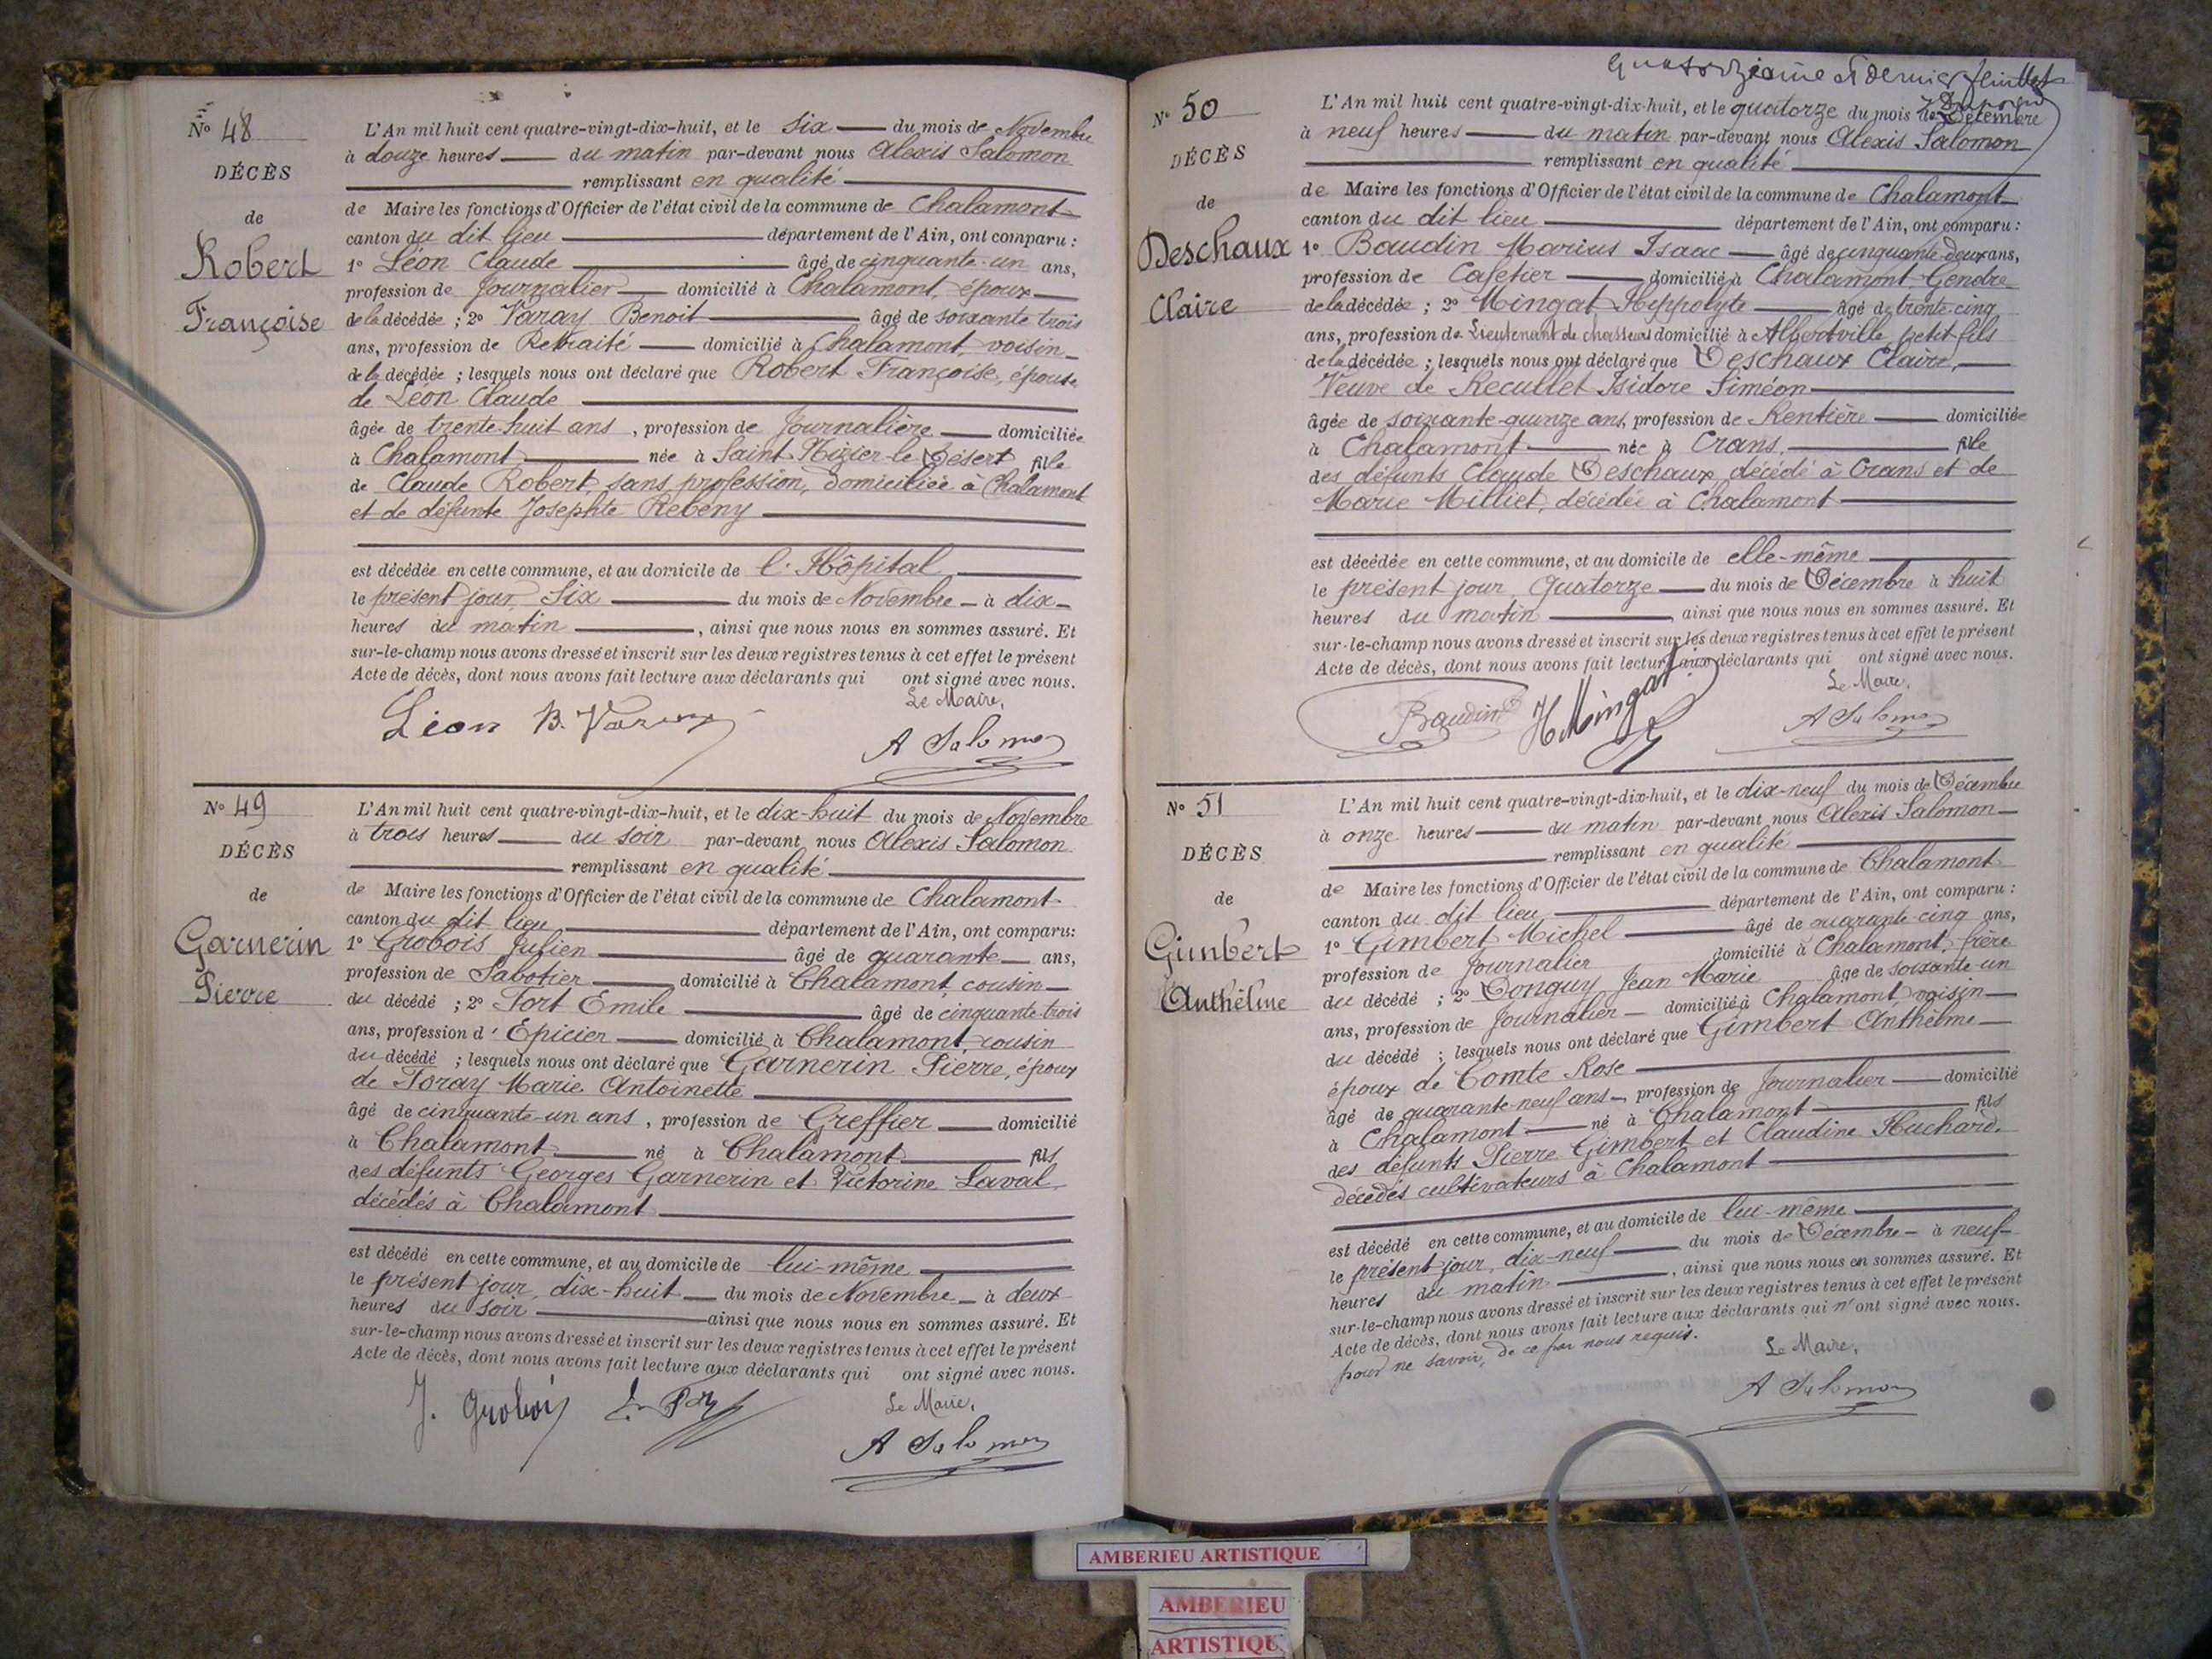 N° 48
DÉCÈS
de
Robert
Françoise
L'An mil huit cent quatre-vingt-dix-huit, et le six du mois de Novembre
à douze heures du matin par-devant nous Alexis Salomon
remplissant en qualité
de Maire les fonctions d'Officier de l'état civil de la commune de Chalamont
canton du dit lieu département de l'Ain, ont comparu :
1° Léon Claude âgé de cinquante-un ans,
profession de Journalier domicilié à Chalamont, époux
de la décédée ; 2° Varay Benoit âgé de soixante trois
ans, profession de Retraité domicilié à Chalamont, voisin
de la décédée ; lesquels nous ont déclaré que Robert Françoise, épouse
de Léon Claude
âgée de trente-huit ans, profession de Journalière domiciliée
à Chalamont née à Saint-Nizier-le-Désert fille
de Claude Robert, sans profession, domiciliée à Chalamont
et de défunte Josephte Rebeny
est décédée en cette commune, et au domicile de l'Hôpital
le présent jour Six du mois de Novembre à dix
heures du matin, ainsi que nous nous en sommes assuré. Et
sur-le-champ nous avons dressé et inscrit sur les deux registres tenus à cet effet le présent
Acte de décès, dont nous avons fait lecture aux déclarants qui ont signé avec nous.
Le Maire,
Léon B. Varay
A Salomon
N° 49
DÉCÈS
de
Garnerin
Pierre
L'An mil huit cent quatre-vingt-dix-huit, et le dix-huit du mois de Novembre
à trois heures du soir par-devant nous Alexis Salomon
remplissant en qualité
de Maire les fonctions d'Officier de l'état civil de la commune de Chalamont
canton du dit lieu département de l'Ain, ont comparu:
1° Grobois Julien âgé de quarante ans,
profession de Sabotier domicilié à Chalamont, cousin
du décédé ; 2° Fort Emile âgé de cinquante-trois
ans, profession d'Épicier domicilié à Chalamont, cousin
du décédé ; lesquels nous ont déclaré que Garnerin Pierre, époux
de Foray Marie Antoinette
âgé de cinquante-un ans, profession de Greffier domicilié
à Chalamont né à Chalamont fils
des défunts Georges Garnerin et Victorine Laval
décédés à Chalamont
est décédé en cette commune, et au domicile de lui-même
le présent jour, dix-huit du mois de Novembre à deux
heures du soir ainsi que nous nous en sommes assuré. Et
sur-le-champ nous avons dressé et inscrit sur les deux registres tenus à cet effet le présent
Acte de décès, dont nous avons fait lecture aux déclarants qui ont signé avec nous.
Le Maire,
J. Grobois
A Salomon
Quatorzième et dernier feuillet
N° 50
DÉCÈS
de
Deschaux
Claire
L'An mil huit cent quatre-vingt-dix-huit, et le quatorze du mois de Décembre
à neuf heures du matin par-devant nous Alexis Salomon
remplissant en qualité
de Maire les fonctions d'Officier de l'état civil de la commune de Chalamont
canton du dit lieu département de l'Ain, ont comparu :
1° Baudin Marius Isaac âgé de cinquante-deux ans,
profession de Cafetier domicilié à Chalamont, Gendre
de la décédée ; 2° Mingat Hippolyte âgé de trente-cinq
ans, profession de Lieutenant de chasseurs domicilié à Albertville, petit-fils
de la décédée ; lesquels nous ont déclaré que Deschaux Claire,
Veuve de Recullet Isidore Siméon
âgée de soixante-quinze ans, profession de Rentière domiciliée
à Chalamont née à Crans, fille
des défunts Claude Deschaux, décédé à Crans et de
Marie Milliet, décédée à Chalamont
est décédée en cette commune, et au domicile de elle-même
le présent jour, quatorze du mois de Décembre à huit
heures du matin, ainsi que nous nous en sommes assuré. Et
sur-le-champ nous avons dressé et inscrit sur les deux registres tenus à cet effet le présent
Acte de décès, dont nous avons fait lecture aux déclarants qui ont signé avec nous.
Le Maire,
Baudin H Mingat
A Salomon
N° 51
DÉCÈS
de
Gimbert
Anthelme
L'An mil huit cent quatre-vingt-dix-huit, et le dix-neuf du mois de Décembre
à onze heures du matin par-devant nous Alexis Salomon
remplissant en qualité
de Maire les fonctions d'Officier de l'état civil de la commune de Chalamont
canton du dit lieu département de l'Ain, ont comparu :
1° Gimbert Michel âgé de quarante-cinq ans,
profession de Journalier domicilié à Chalamont, frère
du décédé ; 2° Donguy Jean Marie âgé de soixante-un
ans, profession de Journalier domicilié à Chalamont, voisin
du décédé ; lesquels nous ont déclaré que Gimbert Anthelme
époux de Comte Rose
âgé de quarante-neuf ans, profession de Journalier domicilié
à Chalamont né à Chalamont fils
des défunts Pierre Gimbert et Claudine Huchard.
décédés cultivateurs à Chalamont
est décédé en cette commune, et au domicile de lui-même
le présent jour, dix-neuf du mois de Décembre à neuf
heures du matin, ainsi que nous nous en sommes assuré. Et
sur-le-champ nous avons dressé et inscrit sur les deux registres tenus à cet effet le présent
Acte de décès, dont nous avons fait lecture aux déclarants qui n'ont signé avec nous.
pour ne savoir, de ce par nous requis.
Le Maire,
A Salomon
AMBERIEU ARTISTIQUE
AMBERIEU
ARTISTIQU